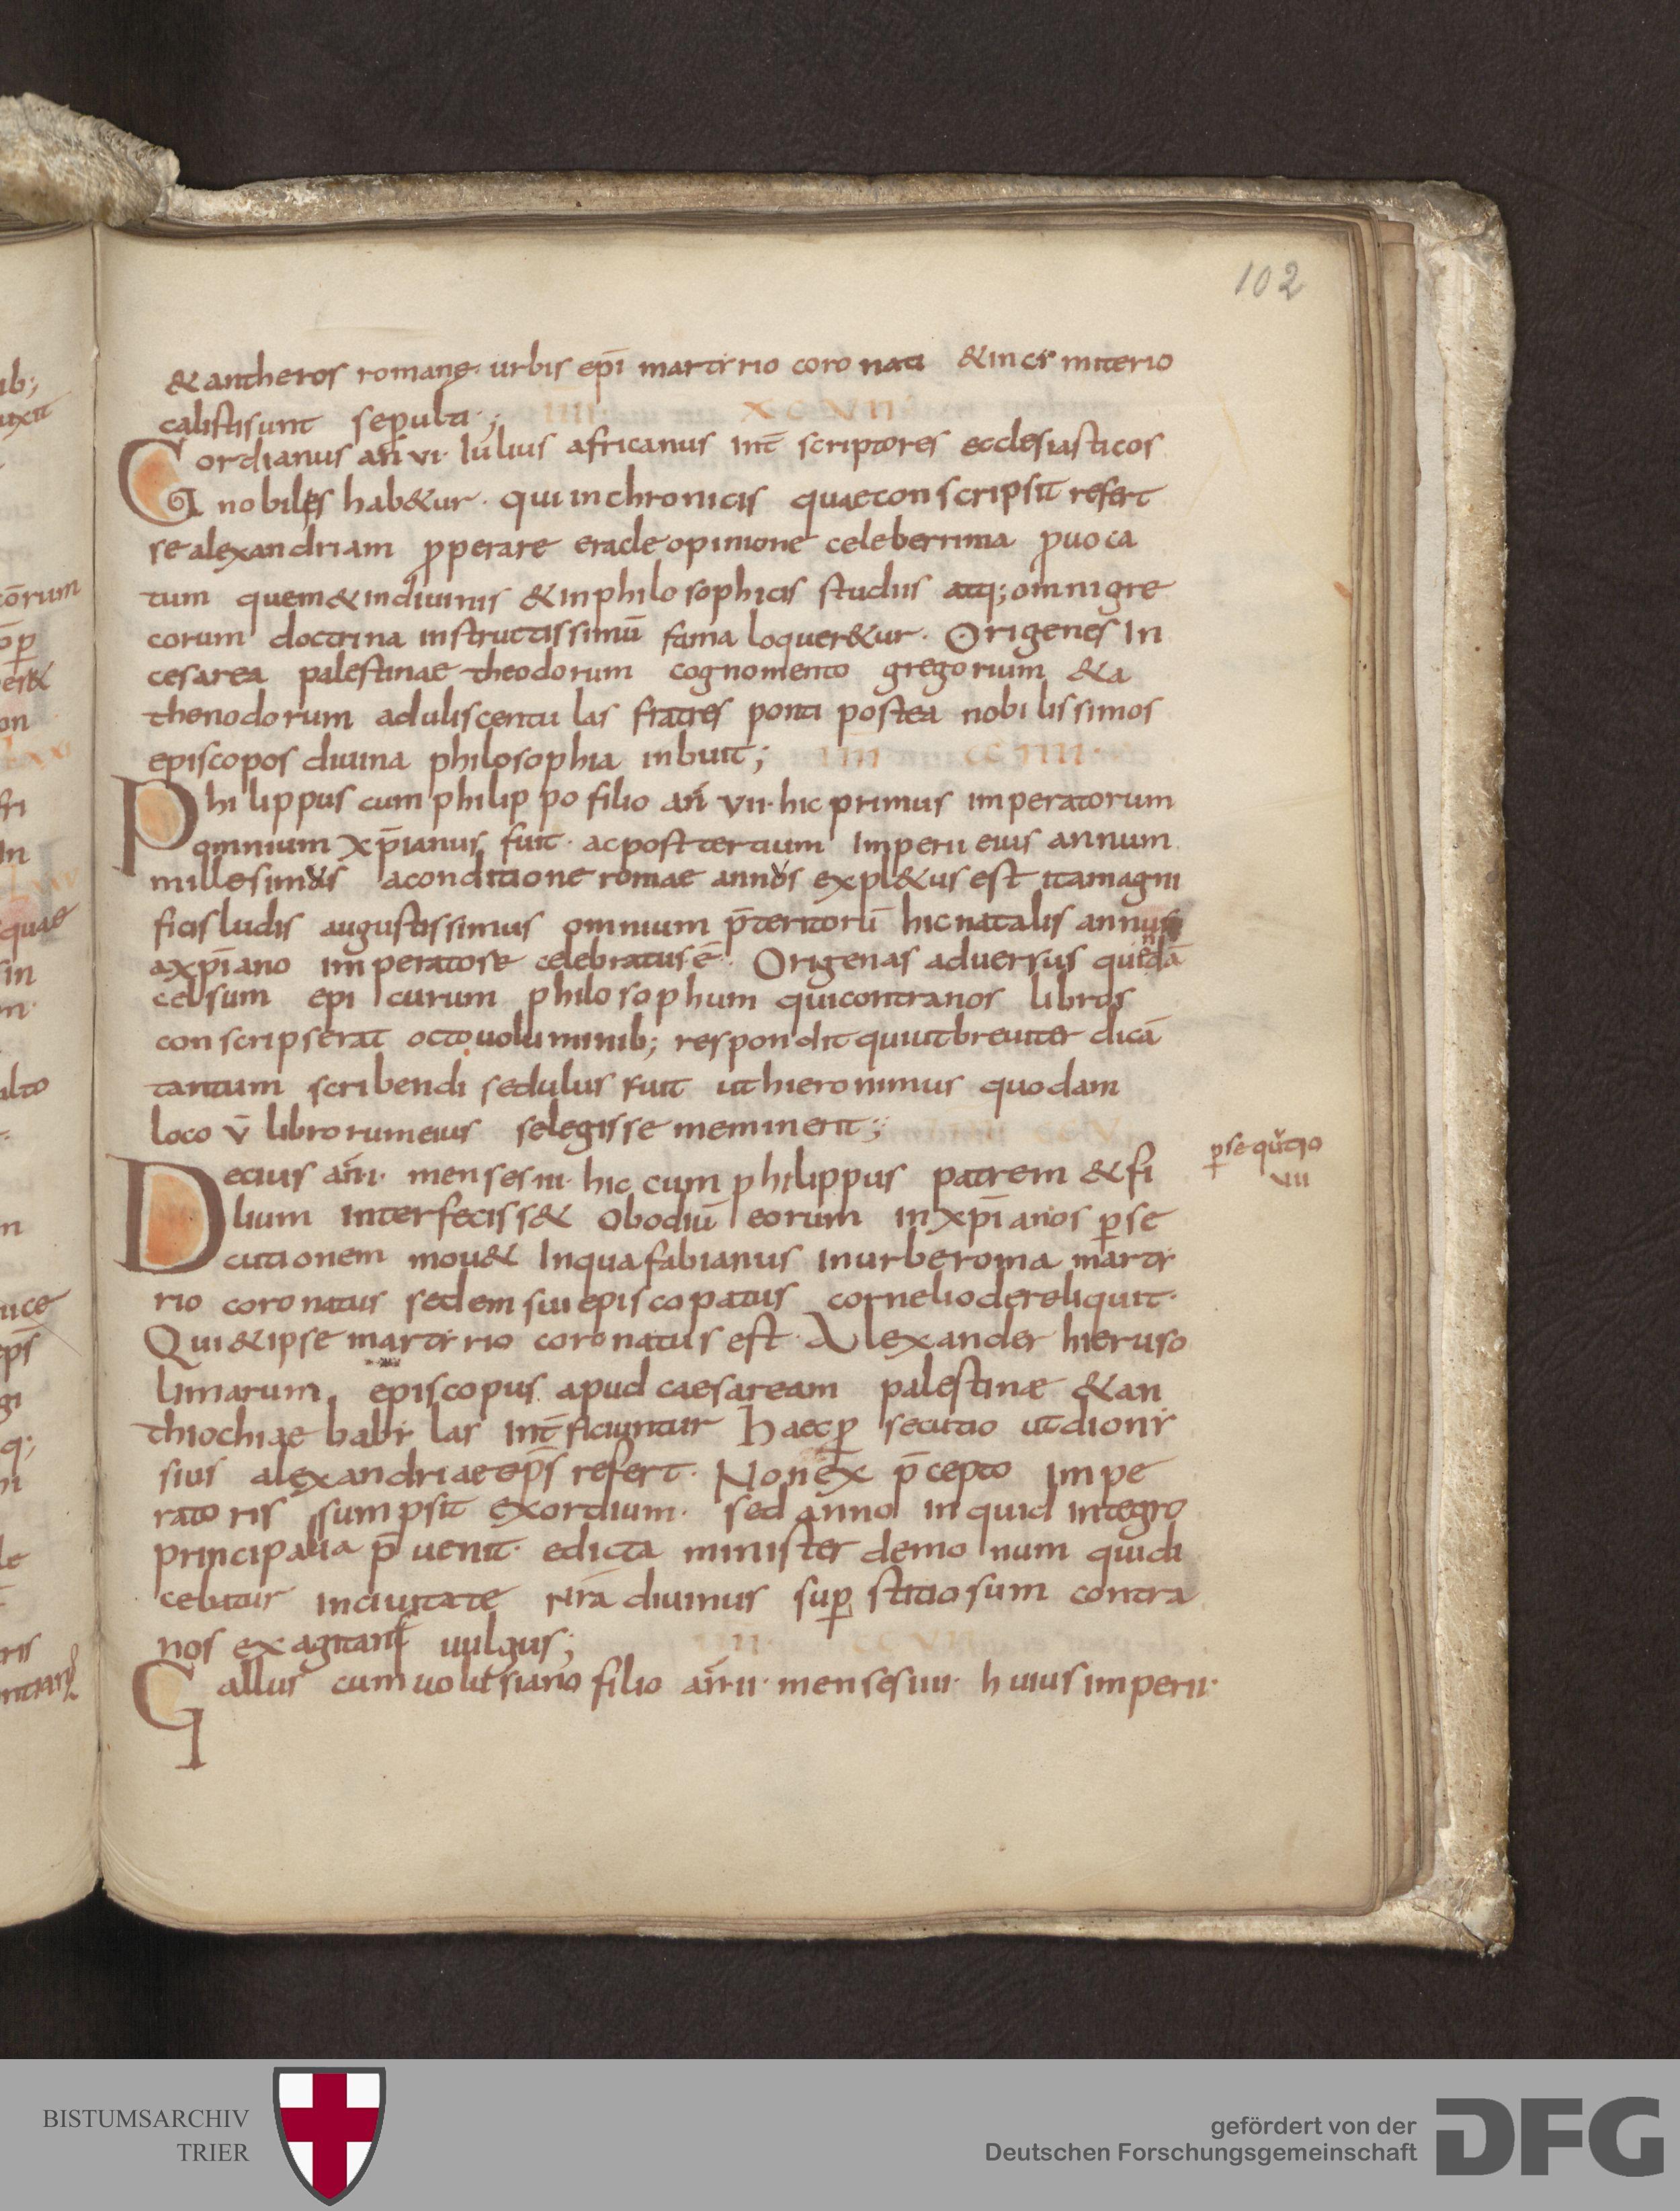 102
& antheros romanę urbis ep̄i martirio coronati & in cimiterio
calisti sunt sepulti;
XCVII
Gordianus an̄ VI Iulius africanus int̄ scriptores ecclesiasticos
nobiles hab&ur. qui in chronicis quae conscripsit refert
se alexandriam ꝓperare eracle opinione celeberrima ꝓuoca
tum quem & in diuinis & in philosophicis studiis atq; omni gre
corum doctrina instructissimū fama loquer&ur. Origenes In
cesarea palestinae theodorum cognomento gregorium & a
thenodorum aduliscentulas fratres ponti postea nobilissimos
episcopos diuina philosophia inbuit;
IIII CCIIII
Philippus cum philippo filio an̄ VII. hic primus imperatorum
omnium xp̄ianus fuit. ac post tertium Imperii eius annum
millesimus a conditione romae annus expl&us est ita magni
ficis ludis augustissimus omnium p̄teritorū hic natalis annus
a xp̄iano imperatore celebratus ē. Origenas aduersus quendā
celsum epicurum philosophum qui contra nos libros
conscripserat octo uoluminib; respondit qui ut breuiter dicā
tantum scribendi sedulus fuit ut hieronimus quodam
loco v̄ librorum eius se legisse meminerit;
Decius an̄ I. menses III. hic cum philippus patrem & fi
lium interfeciss& Obodiū eorum in xp̄ianos ꝑse
cutionem mou& In qua fabianus in urbe roma martí
rio coronatus sedem sui episcopatus cornelio dereliquit.
Qui & ipse martirio coronatus est. Alexander hieruso
limarum episcopus apud caesaream palestinæ & an
thiochiae babilas int̄ficiuntur Haec ꝑsecutio ut dioni
sius alexandriae ep̄s refert. Non ex p̄cepto Impe
ratoris sumpsit exordium. sed anno inquid integro
principalia p̄uenit. edicta minister demonum qui di
cebatur in ciuitate nr̄a diuinus suꝑstitiosum contra
nos exagitans uulgus;
IIII CCVII
Gallus cum uolusiano filio an̄ II. menses IIII. huius imperii.
ꝑsequtio
VII
BISTUMSARCHIV
TRIER
gefördert von der
Deutschen Forschungsgemeinschaft
DFG